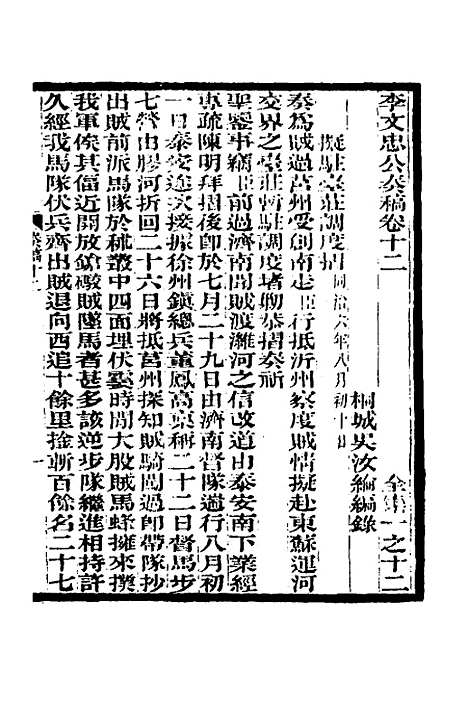 李文忠公奏稿卷十二
全集一之十二
桐城吳汝綸編錄
擬駐臺莊調度摺 同治六年八月初十日
奏爲賊過莒州受創南走臣行抵沂州察度賊情擬赴東蘇運河
交界之臺莊暫駐調度堵勦恭摺奏祈
聖鑒事竊臣前過濟南聞賊渡濰河之信改道由泰安南下業經
專疏陳明拜摺後卽於七月二十九日由濟南督隊遄行八月初
一日泰安途次接據徐州鎭總兵董鳳高稟稱二十二日督馬步
七營由膠河折回二十六日將抵莒州探知賊騎閧過卽帶隊抄
出賊前派馬隊於秫叢中四面埋伏霎時間大股賊馬蜂擁來撲
我軍俟其偪近開放鎗礮賊墜馬者甚多該逆步隊繼進相持許
久經我馬隊伏兵齊出賊退向西追十餘里擒斬百餘名二十七
奏稿十二
一